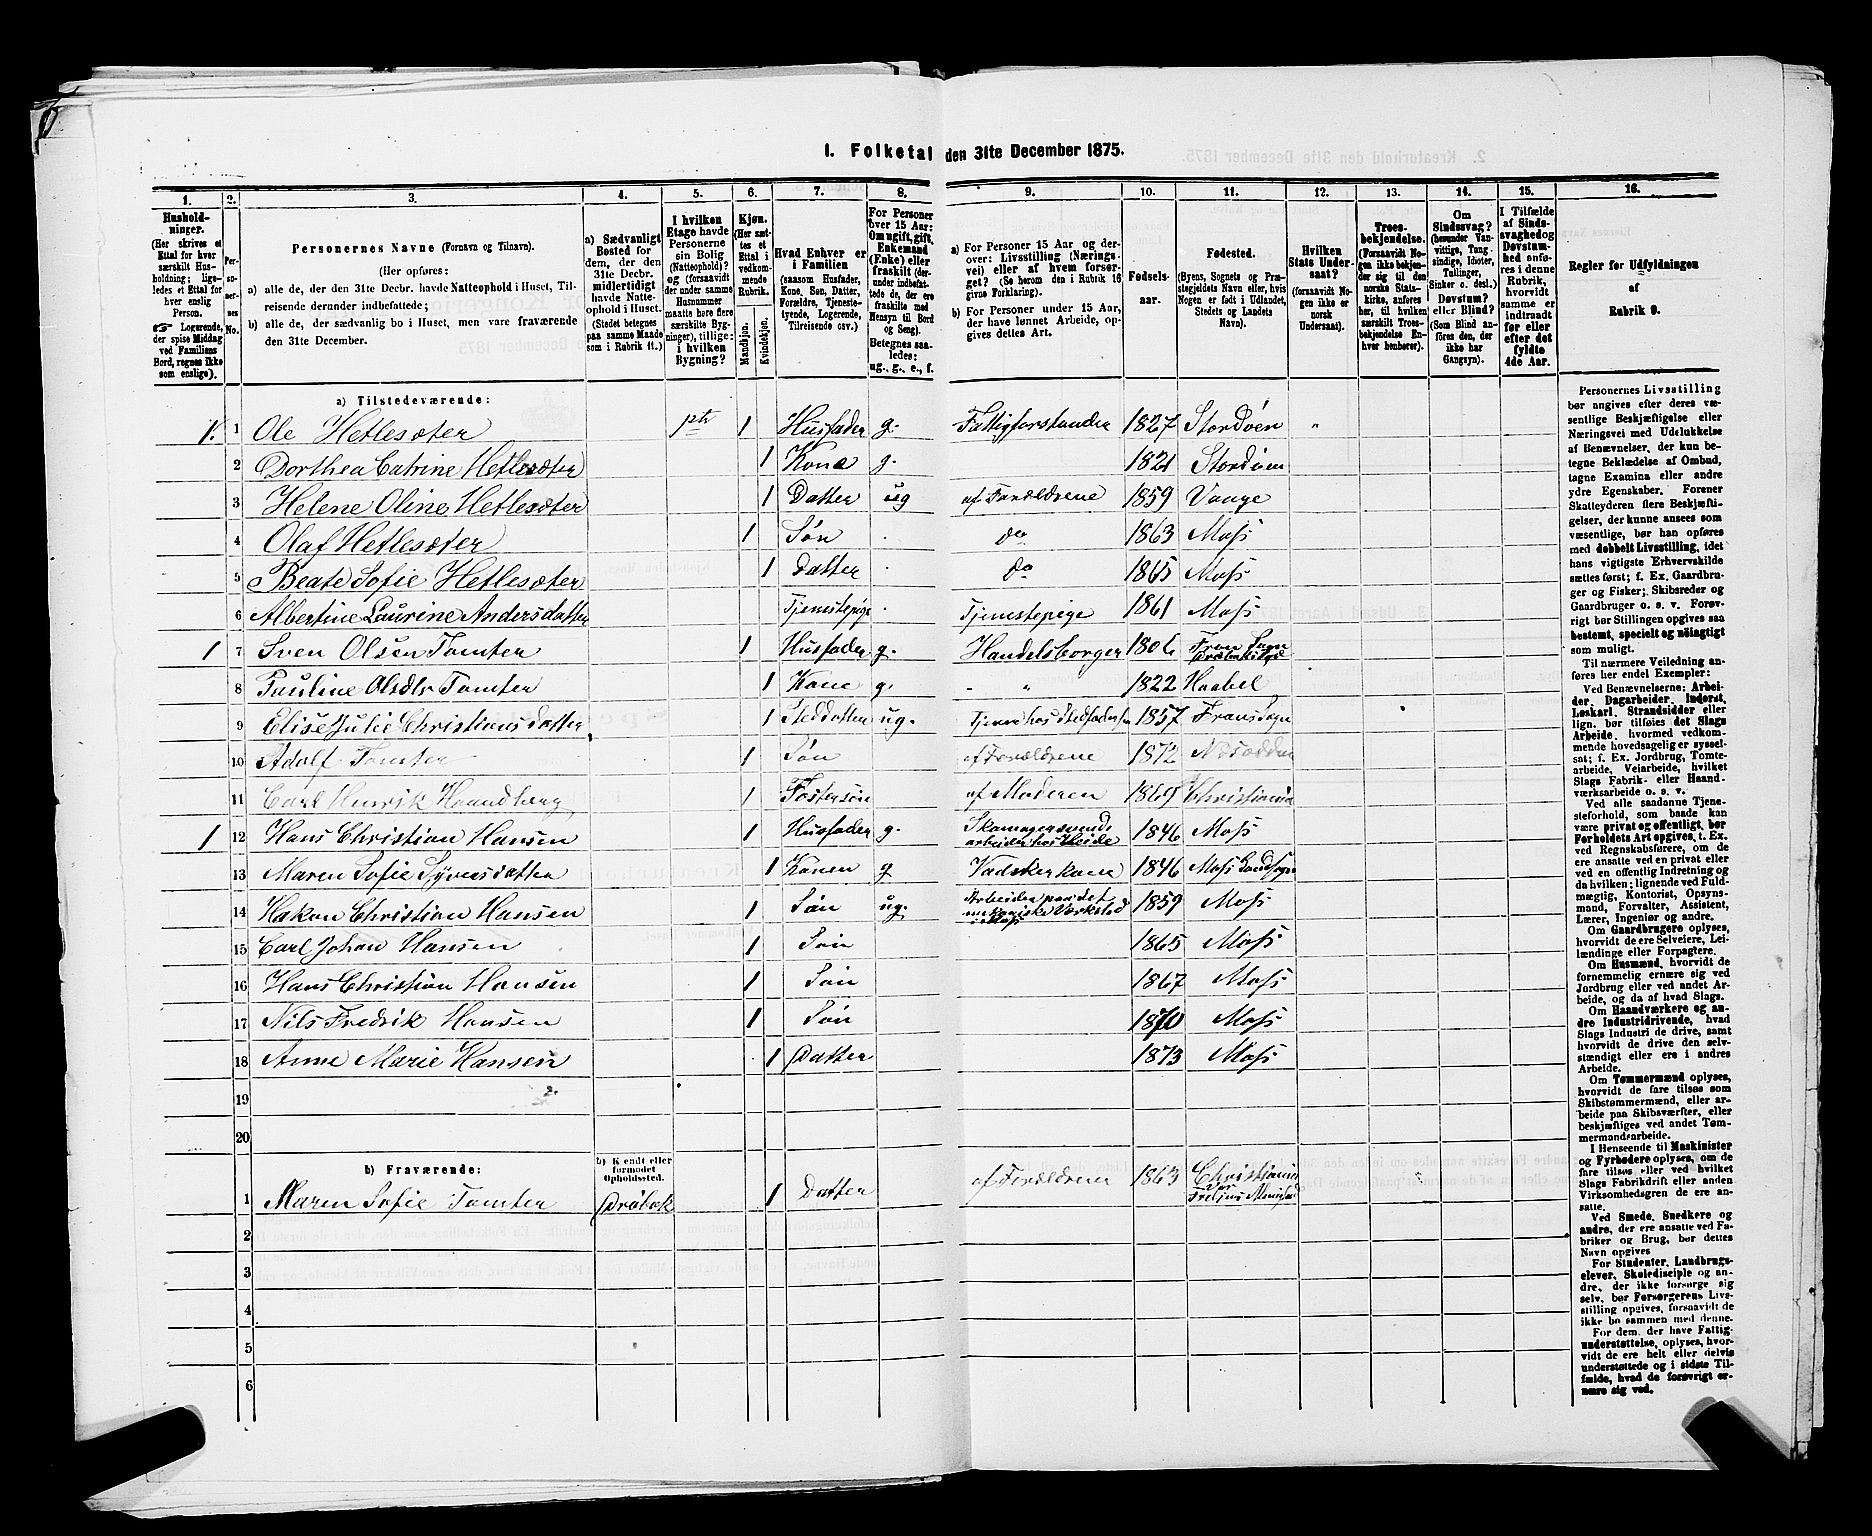 1. Folketal den 31te December 1875.
1.
Hushold-
ninger.
(Her skrives et
Ettal for hver
særskilt Hus-
holdning; lige-
ledes et Ettal for
hver enslig
Person.
Logerende,
der spise Middag
ved Familiens
Bord, regnes ikke
som enslige).
2.
Per-
soner-
nes
No.
3.
Personernes Navne (Fornavn og Tilnavn).
(Her opføres:
a) alle de, der den 31te Decbr. havde Natteophold i Huset, Til-
reisende derunder indbefattede;
b) alle de, der sædvanlig bo i Huset, men vare fraværende
den 31te December.
4.
a) Sædvanligt
Bosted for
dem, der den
31te Decbr.
midlertidigt
havde Natte-
ophold i Huset.
(Stedet betegnes
paa samme Maade
som i Rubrik 11.)
5.
I hvilken
Etage havde
Personerne
sin Bolig
(Natteophold)?
og (forsaavidt
der under samme
Husnummer
maatte høre flere
særskilte Byg-
ninger), tillige:
i hvilken
Bygning?
6.
Kjøn.
(Her sæt-
tes et
Ettal i
vedkom-
mende
Rubrik.
Mandkjøn.
Kvindekjøn.
7.
Hvad Enhver er
i Familien
(saasom Husfader,
Kone, Søn, Datter,
Forældre, Tjeneste-
tyende, Logerende,
Tilreisende osv.)
8.
For Personer
over 15 Aar:
Om ugift, gift,
Enkemand
(Enke) eller
fraskilt (der-
under indbefat-
tede de, der ere
fraskilte med
Hensyn til Bord
og Seng).
Betegnes saa-
ledes:
ug., g., e., f.
9.
a) For Personer 15 Aar og der-
over: Livsstilling (Nærings-
vei) eller af hvem forsør-
get? (Se herom den i Rubrik 16
givne Forklaring).
b) For Personer under 15 Aar,
der have lønnet Arbeide, op-
gives dettes Art.
10.
Fødsels-
aar.
11.
Fødested.
(Byens, Sognets og Præ-
stegjeldets Navn eller, hvis
Nogen er født i Udlandet,
Stedets og Landets
Navn).
12.
Hvilken
Stats Under-
saat?
(forsaavidt No-
gen ikke er
norsk
Undersaat).
13.
Troes-
bekjendelse.
(Forsaavidt No-
gen ikke bekjen-
der sig til den
norske Stats-
kirke, anføres
her, til hvilken
særskilt Troes-
bekjendelse En-
hver henhører).
14.
Om
Sindssvag?
(herunder Van-
vittige, Tung-
sindige, Idioter,
Tullinger,
Sinker o. desl.)
Døvstum?
eller Blind?
(Som Blind an-
føres den, der
ikke har
Gangsyn).
15.
I Tilfælde
af Sinds-
svaghed og
Døvstum-
hed anfø-
res i denne
Rubrik,
hvorvidt
samme er
indtraadt
før eller
efter det
fyldte
4de Aar.
16.
Regler for Udfyldningen
af
Rubrik 9.
a) Tilstedeværende:
1. 1 Ole Hetlesæter ptr 1 Husfader g. Fattigforstander 1827 Stordøen "
2 Dorthea Catrine Hetlesæter 1 Kone g. 1821 Stordøen
3 Helene Oline Hetlesæter 1 Datter ug af Forældrene 1859 Vaage
4 Olaf Hetlesæter 1 Søn . do 1863 Moss
5 Beate Sofie Hetlesæter 1 Datter . do 1865 Moss
6 Albertine Laurine Andersdatter Tjenestepige . Tjenestepige 1861 Moss
1 7 Sven Olsen Tomter 1 Husfader g. Handelsborger 1806 Fron Sogn
8 Pauline Olsdtr Tomter 1 Kone g. " " 1822 Haabel
9 Elise Julie Christiansdatter 1 Steddatter ug. Tjener hos Stedfaderen 1857 Frans Sogn
10 Adolf Tomter 1 Søn af Forældrene 1872 Nesodden
11 Carl Henrik Haandberg 1 Fostersøn af Moderen 1869 Christiania
1 12 Hans Christian Hansen 1 Husfader g. Skomagersvend
arbeider hos Heide 1846 Moss
13 Maren Sofie Syversdatter 1 Konen g Vadskerkone 1846 Moss Landsogn
14 Hakon Christian Hansen 1 Søn ug. Arbeider paa det
mekaniske Værksted
i Moss 1859 Moss
15 Carl Johan Hansen 1 Søn 1865 Moss
16 Hans Christian Hansen 1 Søn 1867 Moss
17 Nils Fredrik Hansen 1 Søn 1870 Moss
18 Anne Marie Hansen 1 Datter 1873 Moss
19
20
b) Fraværende:
b) Kjendt eller
formodet
Opholdssted.
1 Maren Sofie Tomter Drøbak 1 Datter af Forældrene 1863 Christiania
2
3
4
5
6
Personernes Livsstilling
bør angives efter deres væ-
sentlige Beskjæftigelse eller
Næringsvei med Udelukkelse
af Benævnelser, der kun be-
tegne Beklædelse af Ombud,
tagne Examina eller andre
ydre Egenskaber. Forener
Skatteyderen flere Beskjæfti-
gelser, der kunne ansees som
væsentlige, bør han opføres
med dobbelt Livsstilling, idet
hans vigtigste Erhvervskilde
sættes først; f. Ex. Gaardbru-
ger og Fisker; Skibsreder og
Gaardbruger o. s. v. Forøv-
rigt bør Stillingen opgives saa
bestemt, specielt og nøiagtigt
som muligt.
Til nærmere Veiledning an-
føres her endel Exempler:
Ved Benævnelserne: Arbei-
der, Dagarbeider, Inderst,
Løskarl, Strandsidder eller
lign. bør tilføies det Slags
Arbeide, hvormed vedkom-
mende hovedsagelig er syssel-
sat; f. Ex. Jordbrug, Tomte-
arbeide, Veiarbeide, hvilket
Slags Fabrik- eller Haand-
værksarbeide o. s. v.
Ved alle saadanne Tjene-
steforhold, som baade kan
være privat og offentligt, bør
Forholdets Art opgives, f. Ex.
ved Regnskabsførere, om de
ere ansatte ved en privat eller
ved en offentlig Indretning og
da hvilken; lignende ved Fuld-
mægtig, Kontorist, Opsyns-
mand, Forvalter, Assistent,
Lærer, Ingeniør og andre.
Om Gaardbrugere oplyses,
hvorvidt de ere Selveiere, Lei-
lændinge eller Forpagtere.
Om Husmænd, hvorvidt de
fornemmelig ernære sig ved
Jordbrug eller ved andet Ar-
beide, og da af hvad Slags.
Om Haandværkere og an-
dre Industridrivende, hvad
Slags Industri de drive, samt
hvorvidt de drive den selv-
stændigt eller ere i andres
Arbeide.
Om Tømmermænd oplyses,
hvorvidt de fare tilsøs som
Skibstømmermænd, eller ar-
beide paa Skibsværfter, eller
beskjæftiges ved andet Tøm-
mermandsarbeide.
I Henseende til Maskinister
og Fyrbødere oplyses, om de
fare tilsøs eller ved hvilket
Slags Fabrikdrift eller anden
Virksomhedsgren de ere an-
satte.
Ved Smede, Snedkere og
andre, der ere ansatte ved Fa-
briker og Brug, bør dettes
Navn opgives
For Studenter, Landbrugs-
elever, Skoledisciple og an-
dre, der ikke forsørge sig
selv, bør Forsørgerens Livs-
stilling opgives, forsaavidt de
ikke bo sammen med denne.
For dem, der have Fattig-
understøttelse, oplyses, hvor-
vidt de ere helt eller delvis
understøttede og i sidste Til-
fælde, hvad de forøvrigt er-
nære sig ved.